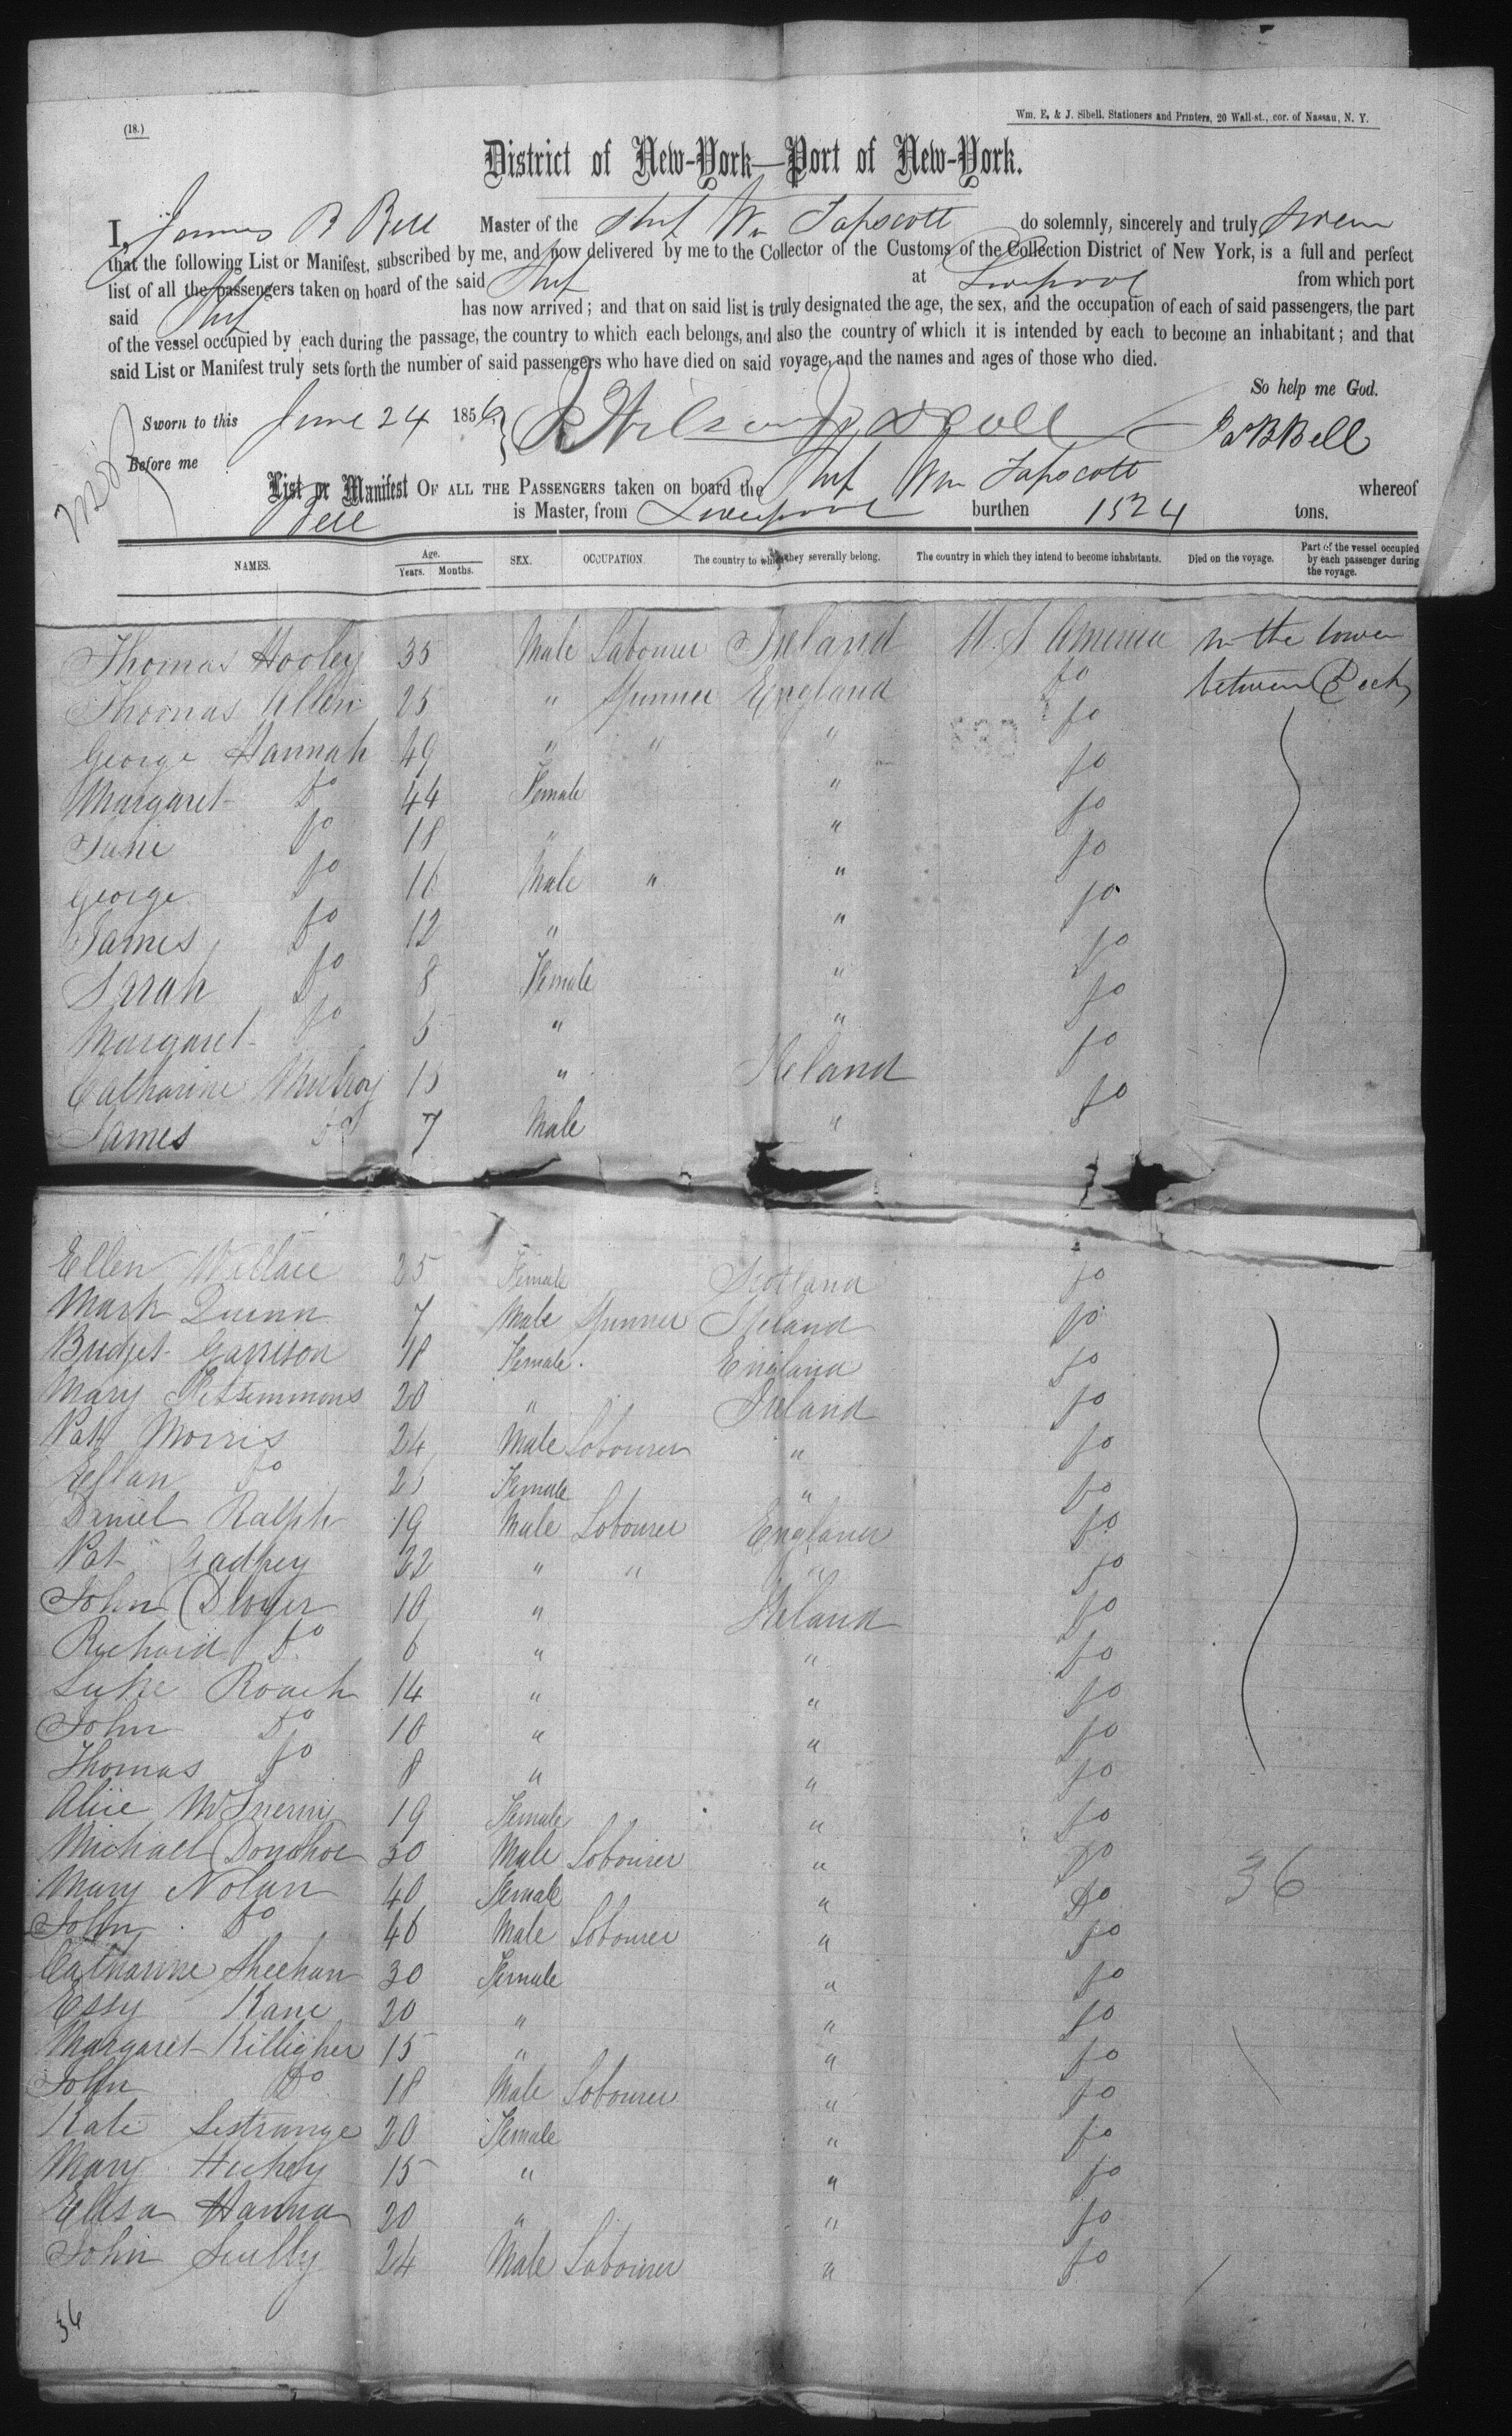 (18.)
Wm. E. & J. Sibell, Stationers and Printers, 20 Wall-st., cor. of Nassau, N. Y.
District of New-York—Port of New-York.
I, James B Bell Master of the Ship Wm Tapscott do solemnly, sincerely and truly swear
that the following List or Manifest, subscribed by me, and now delivered by me to the Collector of the Customs of the Collection District of New York, is a full and perfect
list of all the passengers taken on board of the said Ship at Liverpool from which port
said Ship has now arrived; and that on said list is truly designated the age, the sex, and the occupation of each of said passengers, the part
of the vessel occupied by each during the passage, the country to which each belongs, and also the country of which it is intended by each to become an inhabitant; and that
said List or Manifest truly sets forth the number of said passengers who have died on said voyage, and the names and ages of those who died.
So help me God.
Sworn to this June 24 1856. Jas B Bell
Before me
List or Manifest OF ALL THE PASSENGERS taken on board the Ship Wm Tapscott whereof
Bell is Master, from Liverpool burthen 1524 tons.
NAMES. Age. Years. Months. SEX. OCCUPATION. The country to which they severally belong. The country in which they intend to become inhabitants. Died on the voyage. Part of the vessel occupied by each passenger during the voyage.
Thomas Hooley 35 Male Labourer Ireland U. S. America in the lower
Thomas Allen 25 " Spinner England Do between Decks
George Hannah 49 " " " Do
Margaret Do 44 Female " Do
Jane Do 18 " " Do
George Do 16 Male " " Do
James Do 12 " " Do
Sarah Do 8 Female " Do
Margaret Do 5 " " Do
Catharine Mulroy 15 " Ireland Do
James Do 7 Male " Do
Ellen Wallace 25 Female Scotland Do
Mark Quinn 7 Male Spinner Ireland Do
Bridget Garrison 18 Female England Do
Mary Fitsimmons 20 " Ireland Do
Pat Morris 24 Male Labourer " Do
Ellan Do 25 Female " Do
Daniel Ralph 19 Male Labourer England Do
Pat Gadfrey 22 " " " Do
John Dwyer 10 " Ireland Do
Richard Do 6 " " Do
Luke Roach 14 " " Do
John Do 10 " " Do
Thomas Do 8 " " Do
Alice McInerny 19 Female " Do
Michael Donohoe 30 Male Labourer " Do
Mary Nolan 40 Female " Do 36
John Do 46 Male Labourer " Do
Catharine Sheehan 30 Female " Do
Essy Kane 20 " " Do
Margaret Killigher 15 " " Do
John Do 18 Male Labourer " Do
Kate Lestrange 20 Female " Do
Mary Hickey 15 " " Do
Elisa Hanna 20 " " Do
John Scully 24 Male Labourer " Do
36